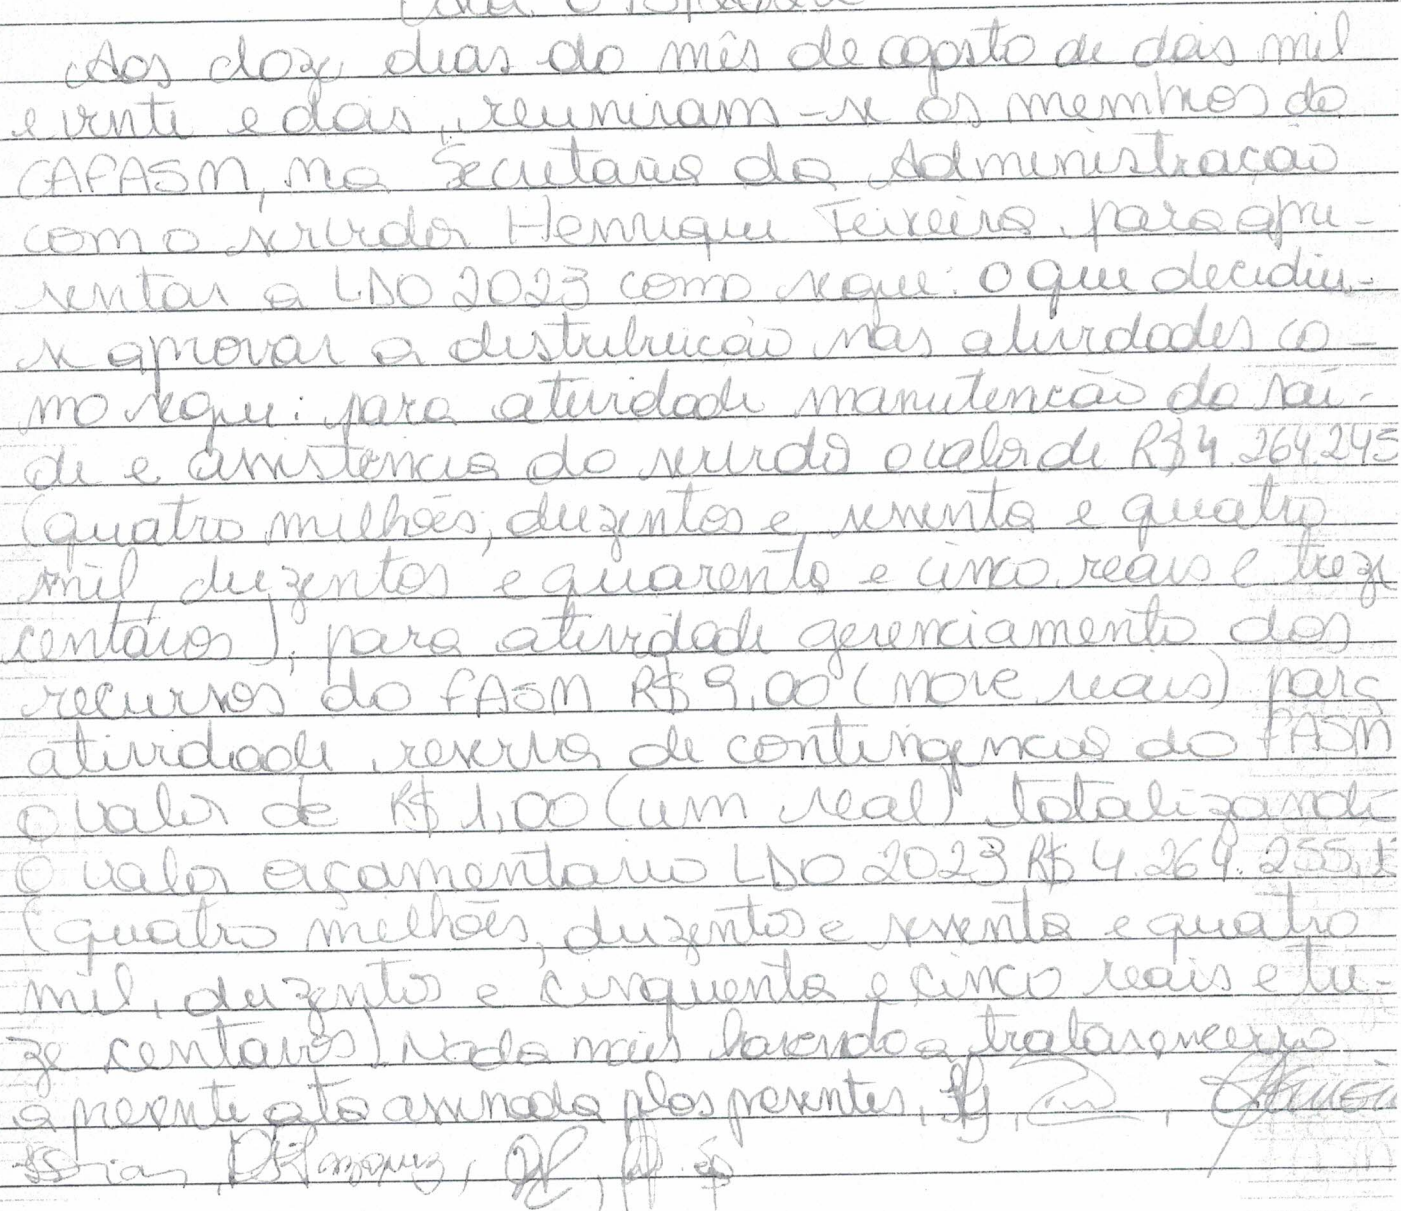 Aos doze dias do mês de agosto de dois mil
e vinte e dois, reuniram-se os membros do
CAFASM, na Secretaria da Administração
com o servidor Henrique Teixeira para apre-
sentar a LDO 2023 como segue: o que decidiu-
se aprovar a distribuição nas atividades co-
mo segue: para atividade manutenção da saú-
de e assistência do servidor o valor de R$ 4.264.245
(quatro milhões, duzentos e sessenta e quatro
mil duzentos e quarenta e cinco reais e treze
centavos), para atividade gerenciamento dos
recursos do FASM R$ 9,00 (nove reais) para
atividade reserva de contingencia do FASM
o valor de R$ 1,00 (um real) totalizando
o valor orçamentario LDO 2023 R$ 4.264.255,
(quatro milhões, duzentos e sessenta e quatro
mil, duzentos e cinquenta e cinco reais e tre-
ze centavos). Nada mais havendo a tratar encerro
a presente ata assinada plos presentes,